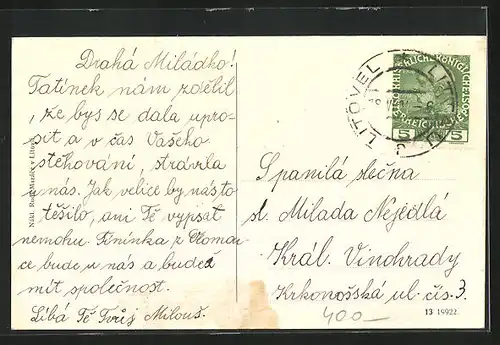 Drahá Miládko!
Tatínek nám zdělil
, že bys se dala upro-
sit a v čas Vašeho
stehování, strávila
u nás. Jak velice by nás to
těšilo, ani Tě vypsat
nemohu. Fininka z Olomou-
ce bude u nás a budeš
mít společnost.
Líbá Tě Tvůj Milouš.
Nákl. Rud. v Litovli
LITOVEL
5 5
Spanilá slečna
sl. Milada Nejedlá
Král. Vinohrady
Krkonošská ul. čís. 3.
400—
13 19922